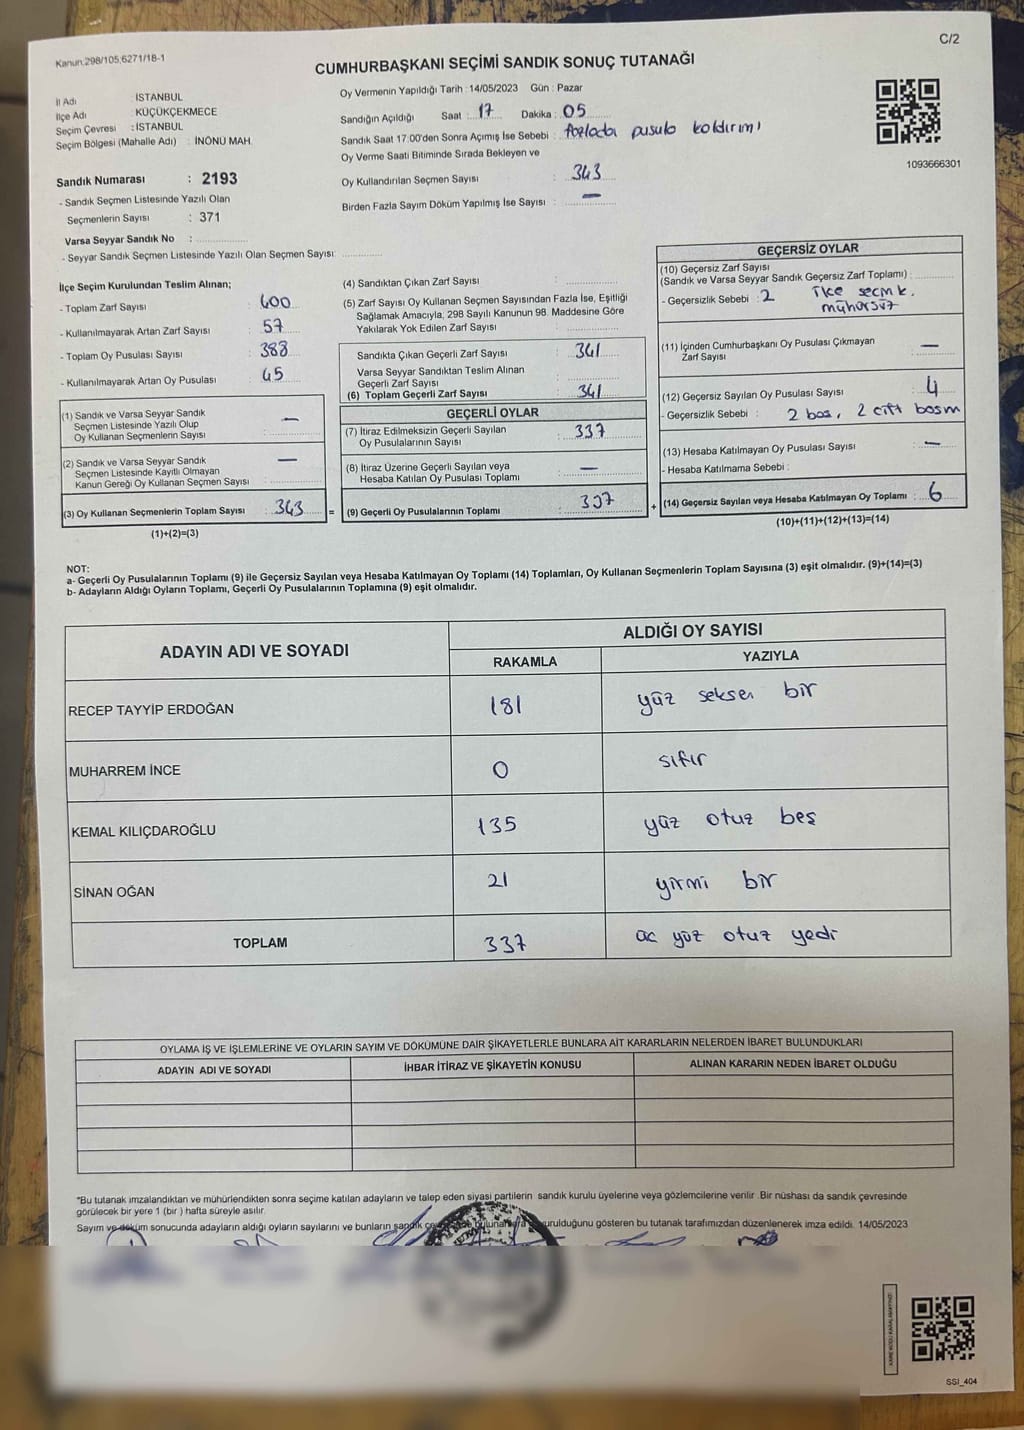 Kanun,298/105,6271/18-1
C/2
CUMHURBAŞKANI SEÇİMİ SANDIK SONUÇ TUTANAĞI
İl Adı : İSTANBUL
İlçe Adı : KÜÇÜKÇEKMECE
Seçim Çevresi : İSTANBUL
Seçim Bölgesi (Mahalle Adı) : İNÖNÜ MAH.
Sandık Numarası : 2193
- Sandık Seçmen Listesinde Yazılı Olan
Seçmenlerin Sayısı : 371
Varsa Seyyar Sandık No :
- Seyyar Sandık Seçmen Listesinde Yazılı Olan Seçmen Sayısı:
Oy Vermenin Yapıldığı Tarih : 14/05/2023 Gün : Pazar
Sandığın Açıldığı Saat : 17 Dakika : 05
Sandık Saat 17.00'den Sonra Açımış İse Sebebi : fazlada pusula kaldırımı
Oy Verme Saati Bitiminde Sırada Bekleyen ve
Oy Kullandırılan Seçmen Sayısı : 343
Birden Fazla Sayım Döküm Yapılmış İse Sayısı : —
1093666301
İlçe Seçim Kurulundan Teslim Alınan;
- Toplam Zarf Sayısı : 600
- Kullanılmayarak Artan Zarf Sayısı : 57
- Toplam Oy Pusulası Sayısı : 388
- Kullanılmayarak Artan Oy Pusulası : 45
(1) Sandık ve Varsa Seyyar Sandık
Seçmen Listesinde Yazılı Olup
Oy Kullanan Seçmenlerin Sayısı : —
(2) Sandık ve Varsa Seyyar Sandık
Seçmen Listesinde Kayıtlı Olmayan
Kanun Gereği Oy Kullanan Seçmen Sayısı : —
(3) Oy Kullanan Seçmenlerin Toplam Sayısı : 343 =
(1)+(2)=(3)
(4) Sandıktan Çıkan Zarf Sayısı :
(5) Zarf Sayısı Oy Kullanan Seçmen Sayısından Fazla İse, Eşitliği
Sağlamak Amacıyla, 298 Sayılı Kanunun 98. Maddesine Göre
Yakılarak Yok Edilen Zarf Sayısı :
Sandıkta Çıkan Geçerli Zarf Sayısı : 341
Varsa Seyyar Sandıktan Teslim Alınan
Geçerli Zarf Sayısı :
(6) Toplam Geçerli Zarf Sayısı : 341
GEÇERLİ OYLAR
(7) İtiraz Edilmeksizin Geçerli Sayılan
Oy Pusulalarının Sayısı : 337
(8) İtiraz Üzerine Geçerli Sayılan veya
Hesaba Katılan Oy Pusulası Toplamı : —
(9) Geçerli Oy Pusulalarının Toplamı : 337 +
GEÇERSİZ OYLAR
(10) Geçersiz Zarf Sayısı
(Sandık ve Varsa Seyyar Sandık Geçersiz Zarf Toplamı) :
- Geçersizlik Sebebi : 2 ilçe seçm k.
mühürsüz
(11) İçinden Cumhurbaşkanı Oy Pusulası Çıkmayan
Zarf Sayısı : —
(12) Geçersiz Sayılan Oy Pusulası Sayısı : 4
- Geçersizlik Sebebi : 2 bos, 2 cift basım
(13) Hesaba Katılmayan Oy Pusulası Sayısı : —
- Hesaba Katılmama Sebebi :
(14) Geçersiz Sayılan veya Hesaba Katılmayan Oy Toplamı : 6
(10)+(11)+(12)+(13)=(14)
NOT:
a- Geçerli Oy Pusulalarının Toplamı (9) ile Geçersiz Sayılan veya Hesaba Katılmayan Oy Toplamı (14) Toplamları, Oy Kullanan Seçmenlerin Toplam Sayısına (3) eşit olmalıdır. (9)+(14)=(3)
b- Adayların Aldığı Oyların Toplamı, Geçerli Oy Pusulalarının Toplamına (9) eşit olmalıdır.
ADAYIN ADI VE SOYADI
ALDIĞI OY SAYISI
RAKAMLA YAZIYLA
RECEP TAYYİP ERDOĞAN 181 yüz seksen bir
MUHARREM İNCE 0 sıfır
KEMAL KILIÇDAROĞLU 135 yüz otuz beş
SİNAN OĞAN 21 yirmi bir
TOPLAM 337 üc yüz otuz yedi
OYLAMA İŞ VE İŞLEMLERİNE VE OYLARIN SAYIM VE DÖKÜMÜNE DAİR ŞİKAYETLERLE BUNLARA AİT KARARLARIN NELERDEN İBARET BULUNDUKLARI
ADAYIN ADI VE SOYADI İHBAR İTİRAZ VE ŞİKAYETİN KONUSU ALINAN KARARIN NEDEN İBARET OLDUĞU
*Bu tutanak imzalandıktan ve mühürlendikten sonra seçime katılan adayların ve talep eden siyasi partilerin sandık kurulu üyelerine veya gözlemcilerine verilir. Bir nüshası da sandık çevresinde
görülecek bir yere 1 (bir ) hafta süreyle asılır.
Sayım ve döküm sonucunda adayların aldığı oyların sayılarını ve bunların sandık gösteren bu tutanak tarafımızdan düzenlenerek imza edildi. 14/05/2023
SSI_404